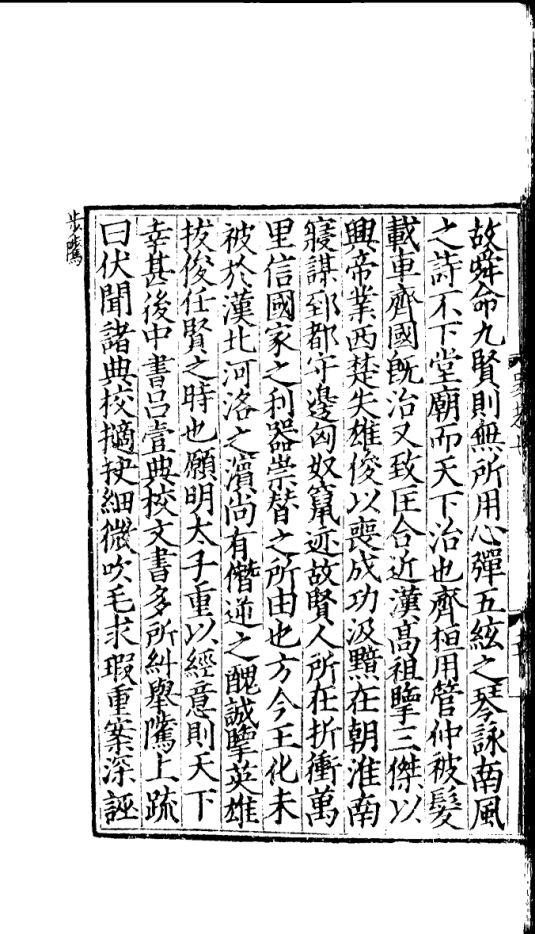 故舜命九賢則無所用心彈五絃之琴詠南風
之詩不下堂廟而天下治也齊桓用管仲被髮
載車齊國既治又致匡合近漢高祖擥三傑以
興帝業西楚失雄俊以喪成功汲黯在朝淮南
寢謀郅都守邊匈奴竄迹故賢人所在折衝萬
里信國家之利器崇替之所由也方今王化未
被於漢北河洛之濵尚有僭逆之醜誠擥英雄
拔俊任賢之時也願明太子重以經意則天下
幸甚後中書吕壹典校文書多所糾舉隲上疏
曰伏聞諸典校擿抉細微吹毛求瑕重案深誣
步隲